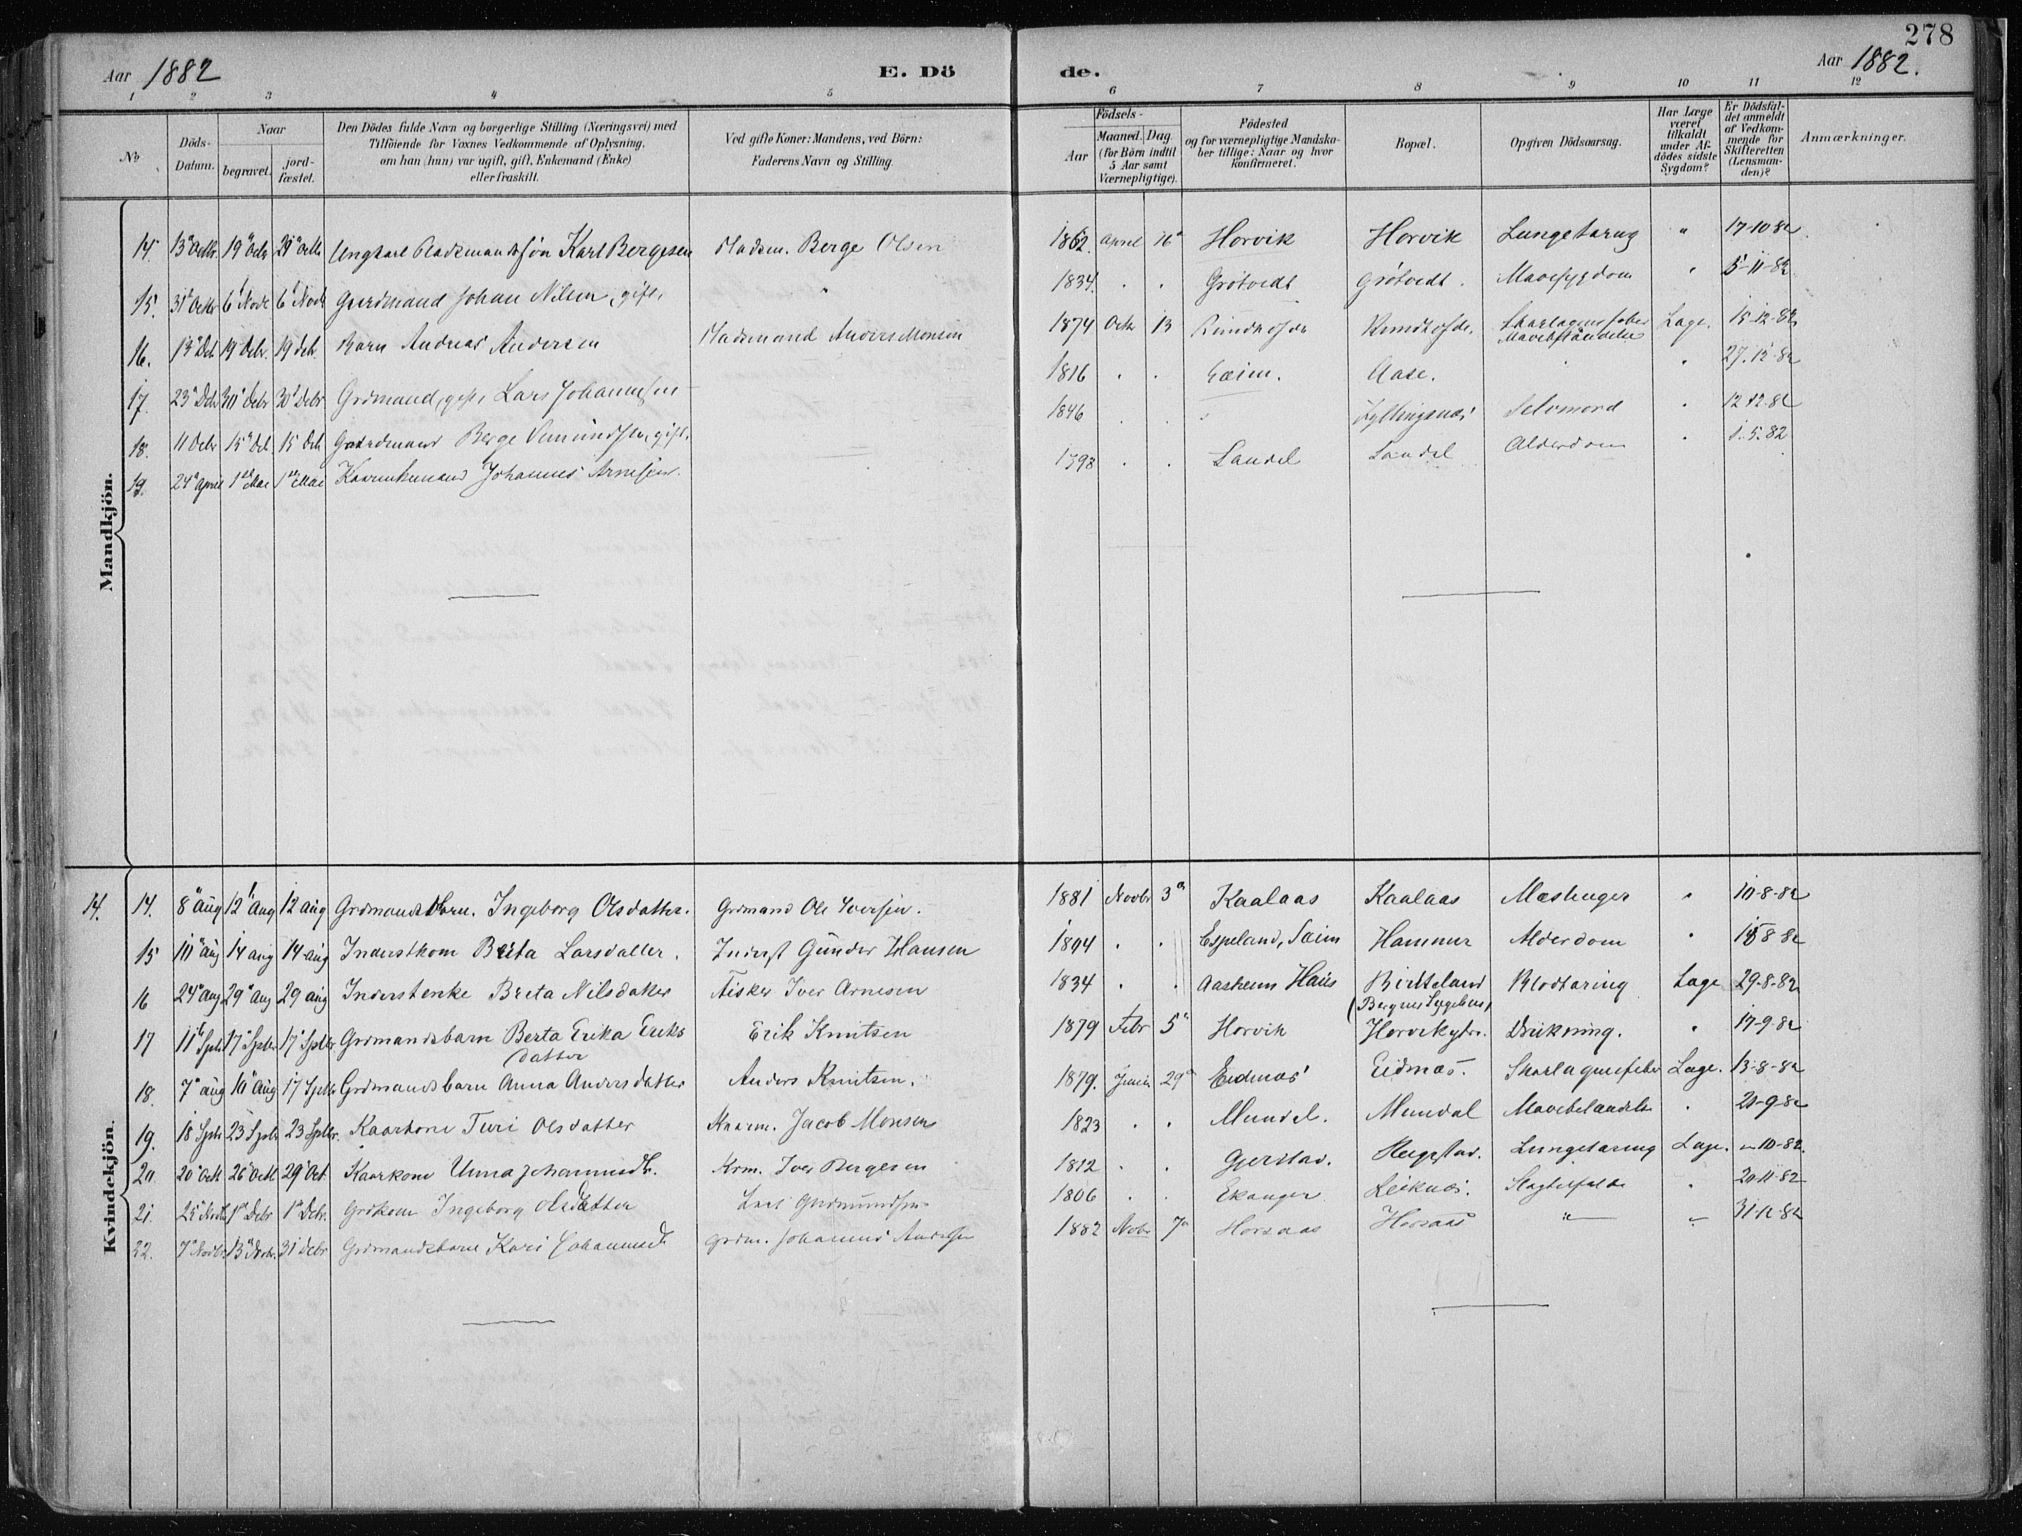 278
Aar 1882 E. Dö de. Aar 1882.
1 2 3 4 5 6 7 8 9 10 11 12
No
Döds-Datum.
Naar
begravet.
jord-fæstet.
Den Dödes fulde Navn og borgerlige Stilling (Næringsvei) med
Tilföiende for Voxnes Vedkommende af Oplysning,
om han (hun) var ugift, gift, Enkemand (Enke)
eller fraskilt.
Ved gifte Koner: Mandens, ved Börn:
Faderens Navn og Stilling.
Födsels-
Aar
Maaned. Dag.
(for Börn indtil
5 Aar samt
Værnepligtige).
Födested
og for værnepligtige Mandska-
ber tillige: Naar og hvor
konfirmeret.
Bopæl.
Opgiven Dödsaarsag.
Har Læge
været
tilkaldt
under Af-
dödes sidste
Sygdom?
Er Dödsfal-
det anmeldt
af Vedkom-
mende for
Skifteretten
(Lensman-
den)?
Anmærkninger.
Mandkjön.
14. 13 Octb. 19 Octbr 29 Octb Ungkarl Pladsmandssön Karl Bergesen Pladsm. Berge Olsen 1862 April 16 Horvik Horvik Lungetæring " 17-10 82
15. 31 Octbr 6 Novb 6 Novb Gaardmand Johan Nilsen, gift, " 1834. " " Grötvedt Grötvedt. Mavesygdom " 5-11-82
16. 13 Deb 19 Debr. 19 deb. Barn Andreas Andersen Pladsmand Anders Monsen 1874 Octr 13 Skarlagensfeber Læge. 15-12-82
17. 23 Debr 30 Debr 30 Debr Grdmand, gift, Lars Johannessen 1816 " " Sæim. Aase. " " 27-12-82
18. 11 Debr 15 Deb 15 Deb Gaardmand Berge gift, 1846 " " Lyllingsnæs Selvmord " 12-12-82
19. 24 April 1 Mai 1 Mai Kaarenkemand Johannes Arnesen. 1798 " " Landel Landel Alderdom " 1.5.82
Kvindekjön.
14. 14. 8 aug 12 aug 12 aug Grdmandsbarn. Ingeborg Olsdatter. Grdmand Ole Iversen. 1881 Novbr 3 Kaalaas Kaalaas Mæslinger " 10-8-82
15 10 aug 14 aug 14 aug Inderstkone Brita Larsdatter. Inderst Gunder Hansen 1804 " " Espeland, Sæim Hammer Alderdom " 15 8-82
16 24 aug 29 aug 29 aug Inderstenke Brita Nilsdatter Fisker Iver Arnesen 1834 " " Aasheim Haus Birkeland Blodtæring Læge 29-8-82
(Bergens Sygehus)
17 11 Sptb 17 Sptbr 17 Sptbr Grdmandsbarn Berta Erika Eriks Erik Knutsen 1879 Febr 5 Horvik Horvikytre. Drukning. " 17-9-82
datter
18. 7 aug 10 aug 17 Sptbr Grdmandsbarn Anna Andersdatter Anders Knutsen. 1879. Juni 29 Eidnæs Eidnæs. Skarlagensfeber Læge. 13-8-82
19. 18 Sptb 23 Sptbr 23 Sptbr. Kaarkone Turi Olsdatter Kaarm. Jacob Monsen 1823 " " Mundal. Mundal " 20-9-82
20. 20 Octb 26 Octb 29 Oct Kaarkone Anna Johannesdt. Krm. Iver Bergesen 1812 " " Gjerstad. Hegestad. Lungetæring Læge. -10-82
21. 25 Novb 1 Debr 1 Debr. Grdkone Ingeborg Olsdatter Lars Gudmundsen 1806 " " Ekanger Leiknæs. " 20-11-82
22. 7 Novbr 13 Debr. 31 Debr Grdmandsbarn Kari Johannesd. Grdm. Johannes 1882 Novbr 7 Horsaas Horsaas " " 31-12-82